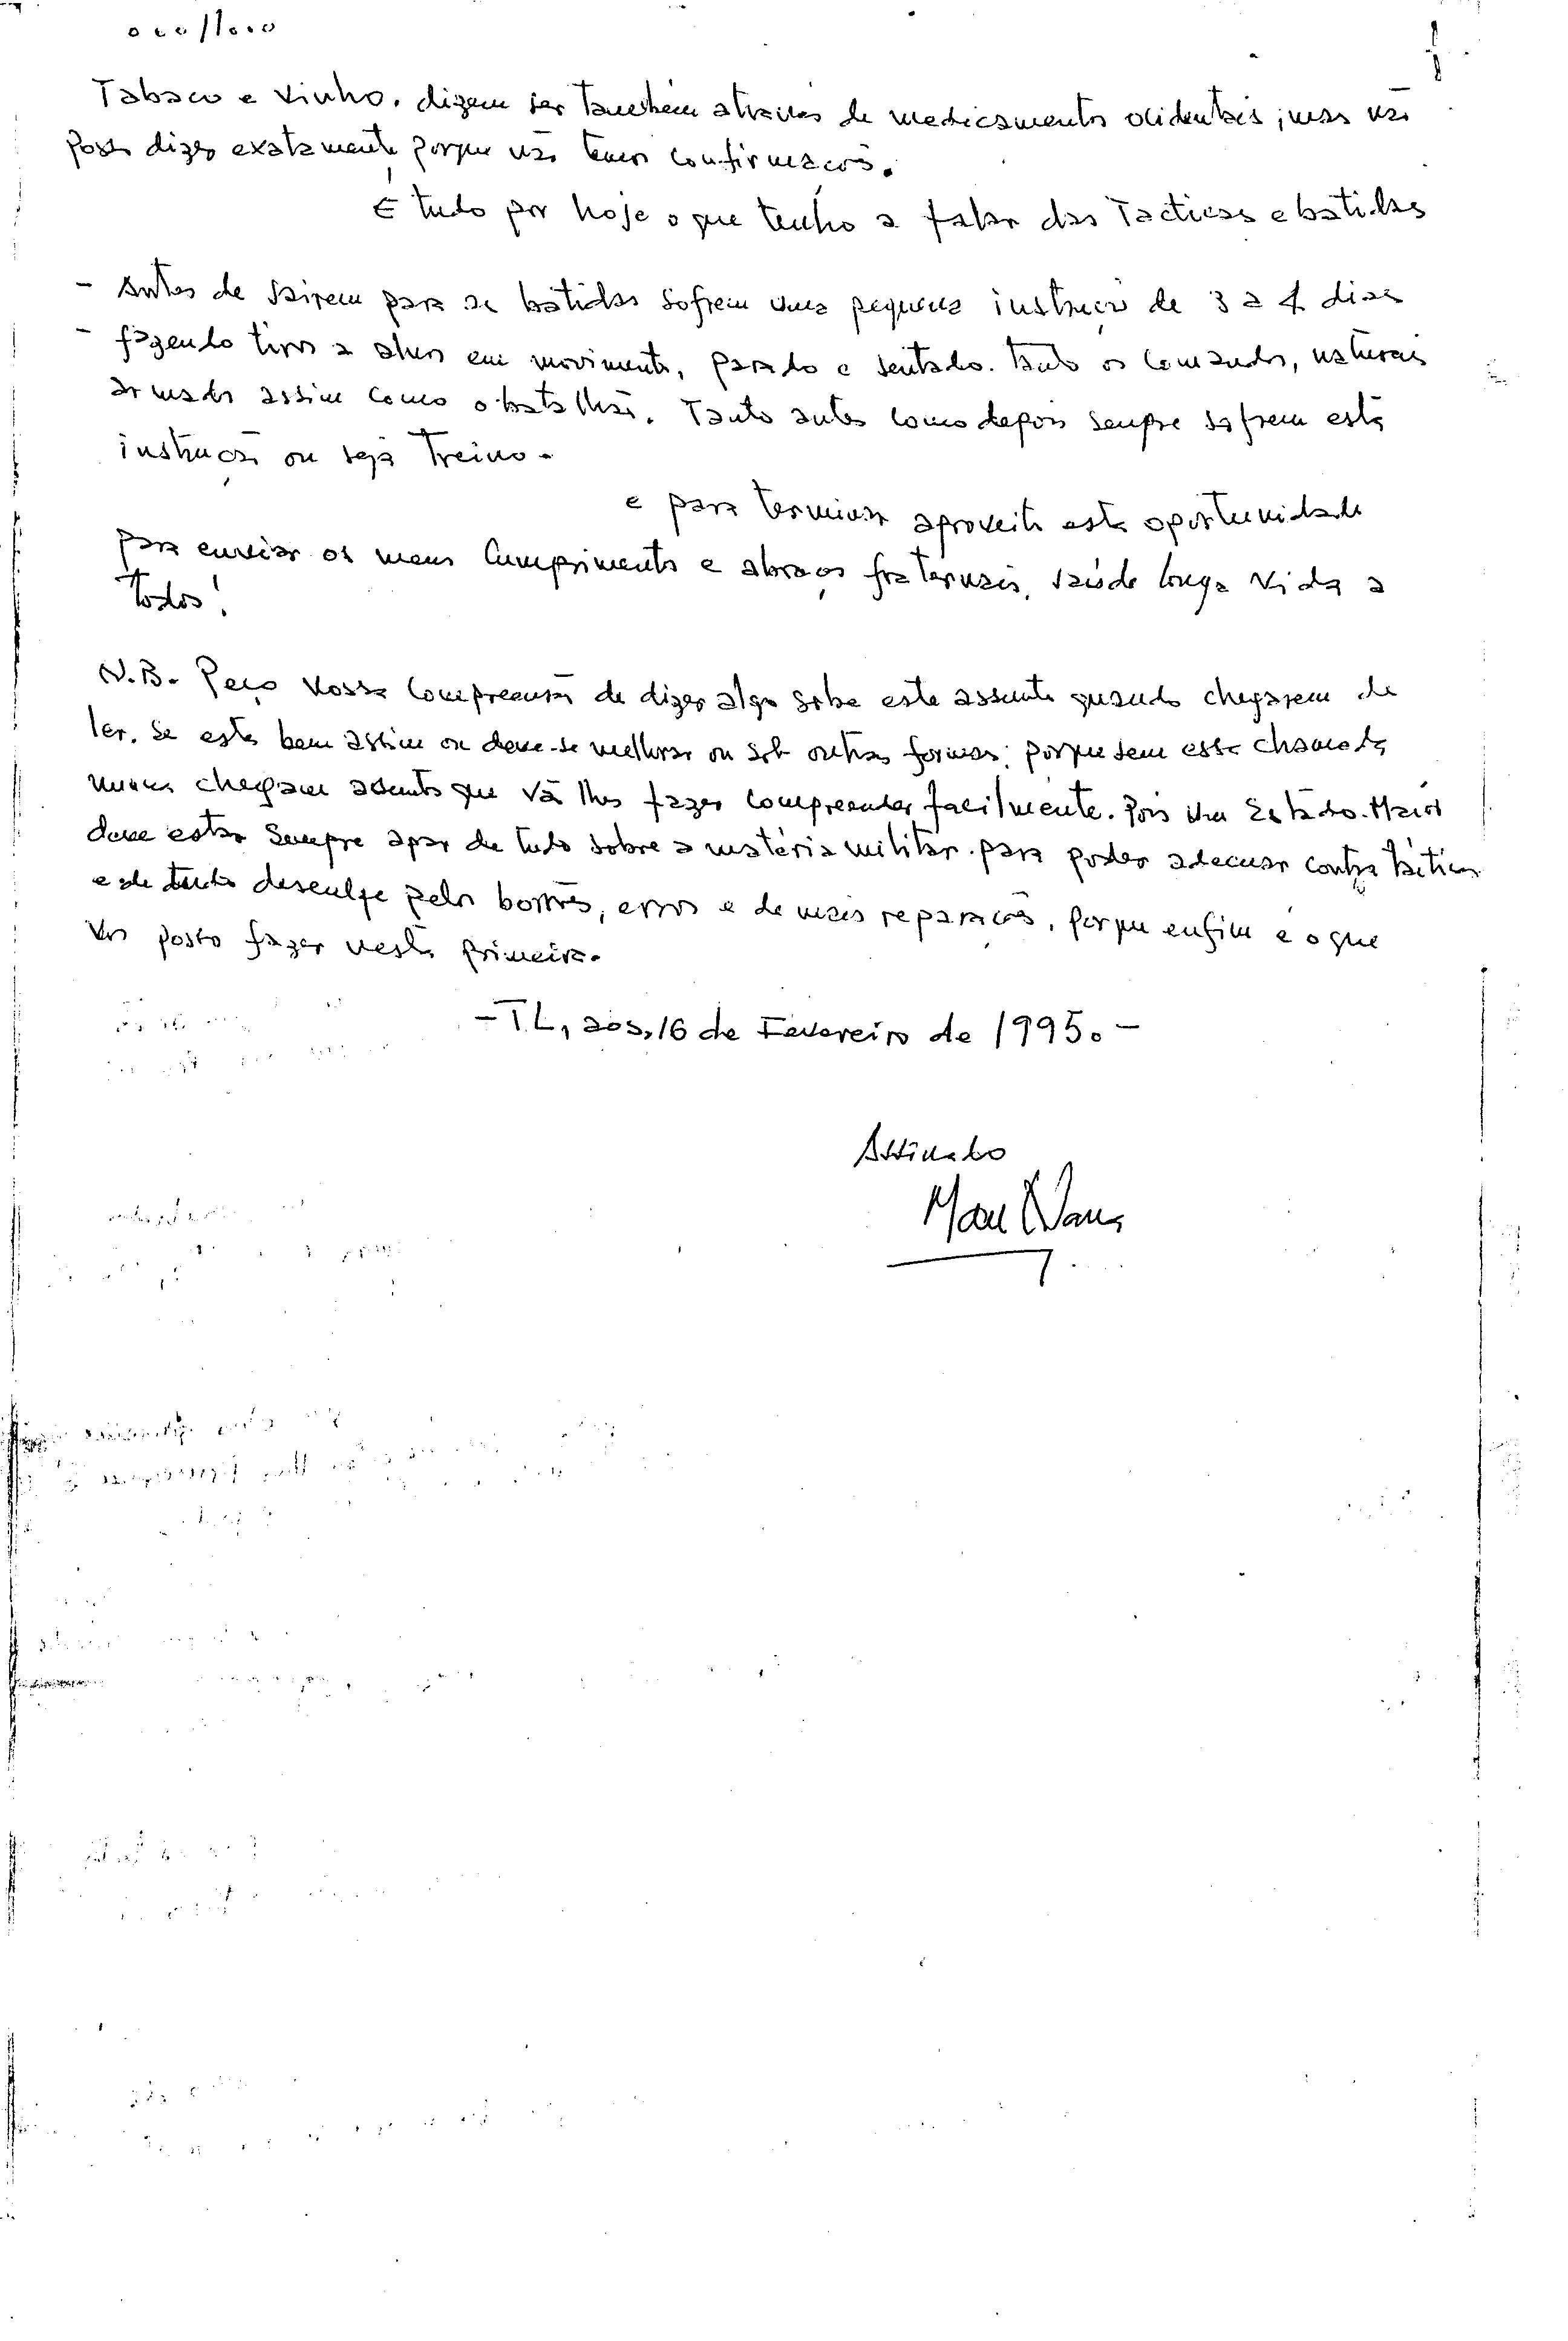 ooo/1ooo
Tabaco e Vinho. dizem ser também através de medicamentos ocidentais; mas não
Posso dizer exatamente porque não temos confirmação.
É tudo por hoje o que tenho a falar das Tacticas e batidas
- Antes de sairem para as batidas sofrem uma pequena instrução de 3 a 4 dias
- fazendo tiros a alvos em movimento, parado e sentado. tanto os Comandos, naturais
armados assim como o batalhão. Tanto antes como depois sempre sofrem esta
instrução ou seja Treino.
e para terminar aproveito esta oportunidade
para enviar os meus Cumprimentos e abraços fraternais, saúde longa vida a
Todos!
N.B. Peço Vossa Compreensão de dizer algo sobre este assunto quando chegarem de
ler. Se está bem assim ou deve-se melhorar ou sob outras formas; porque sem essa chamada
nunca chegam assunto que vá lhes fazer compreender facilmente. Pois um Estado-Maior
deve estar Sempre apar de tudo sobre a matéria militar para poder adecuar contra táticas
e de tudo desculpe pelos borrões, erros e demais reparações, porque enfim é o que
Vos posso fazer nesta primeira.
-TL, aos, 16 de Fevereiro de 1995.-
Assinado